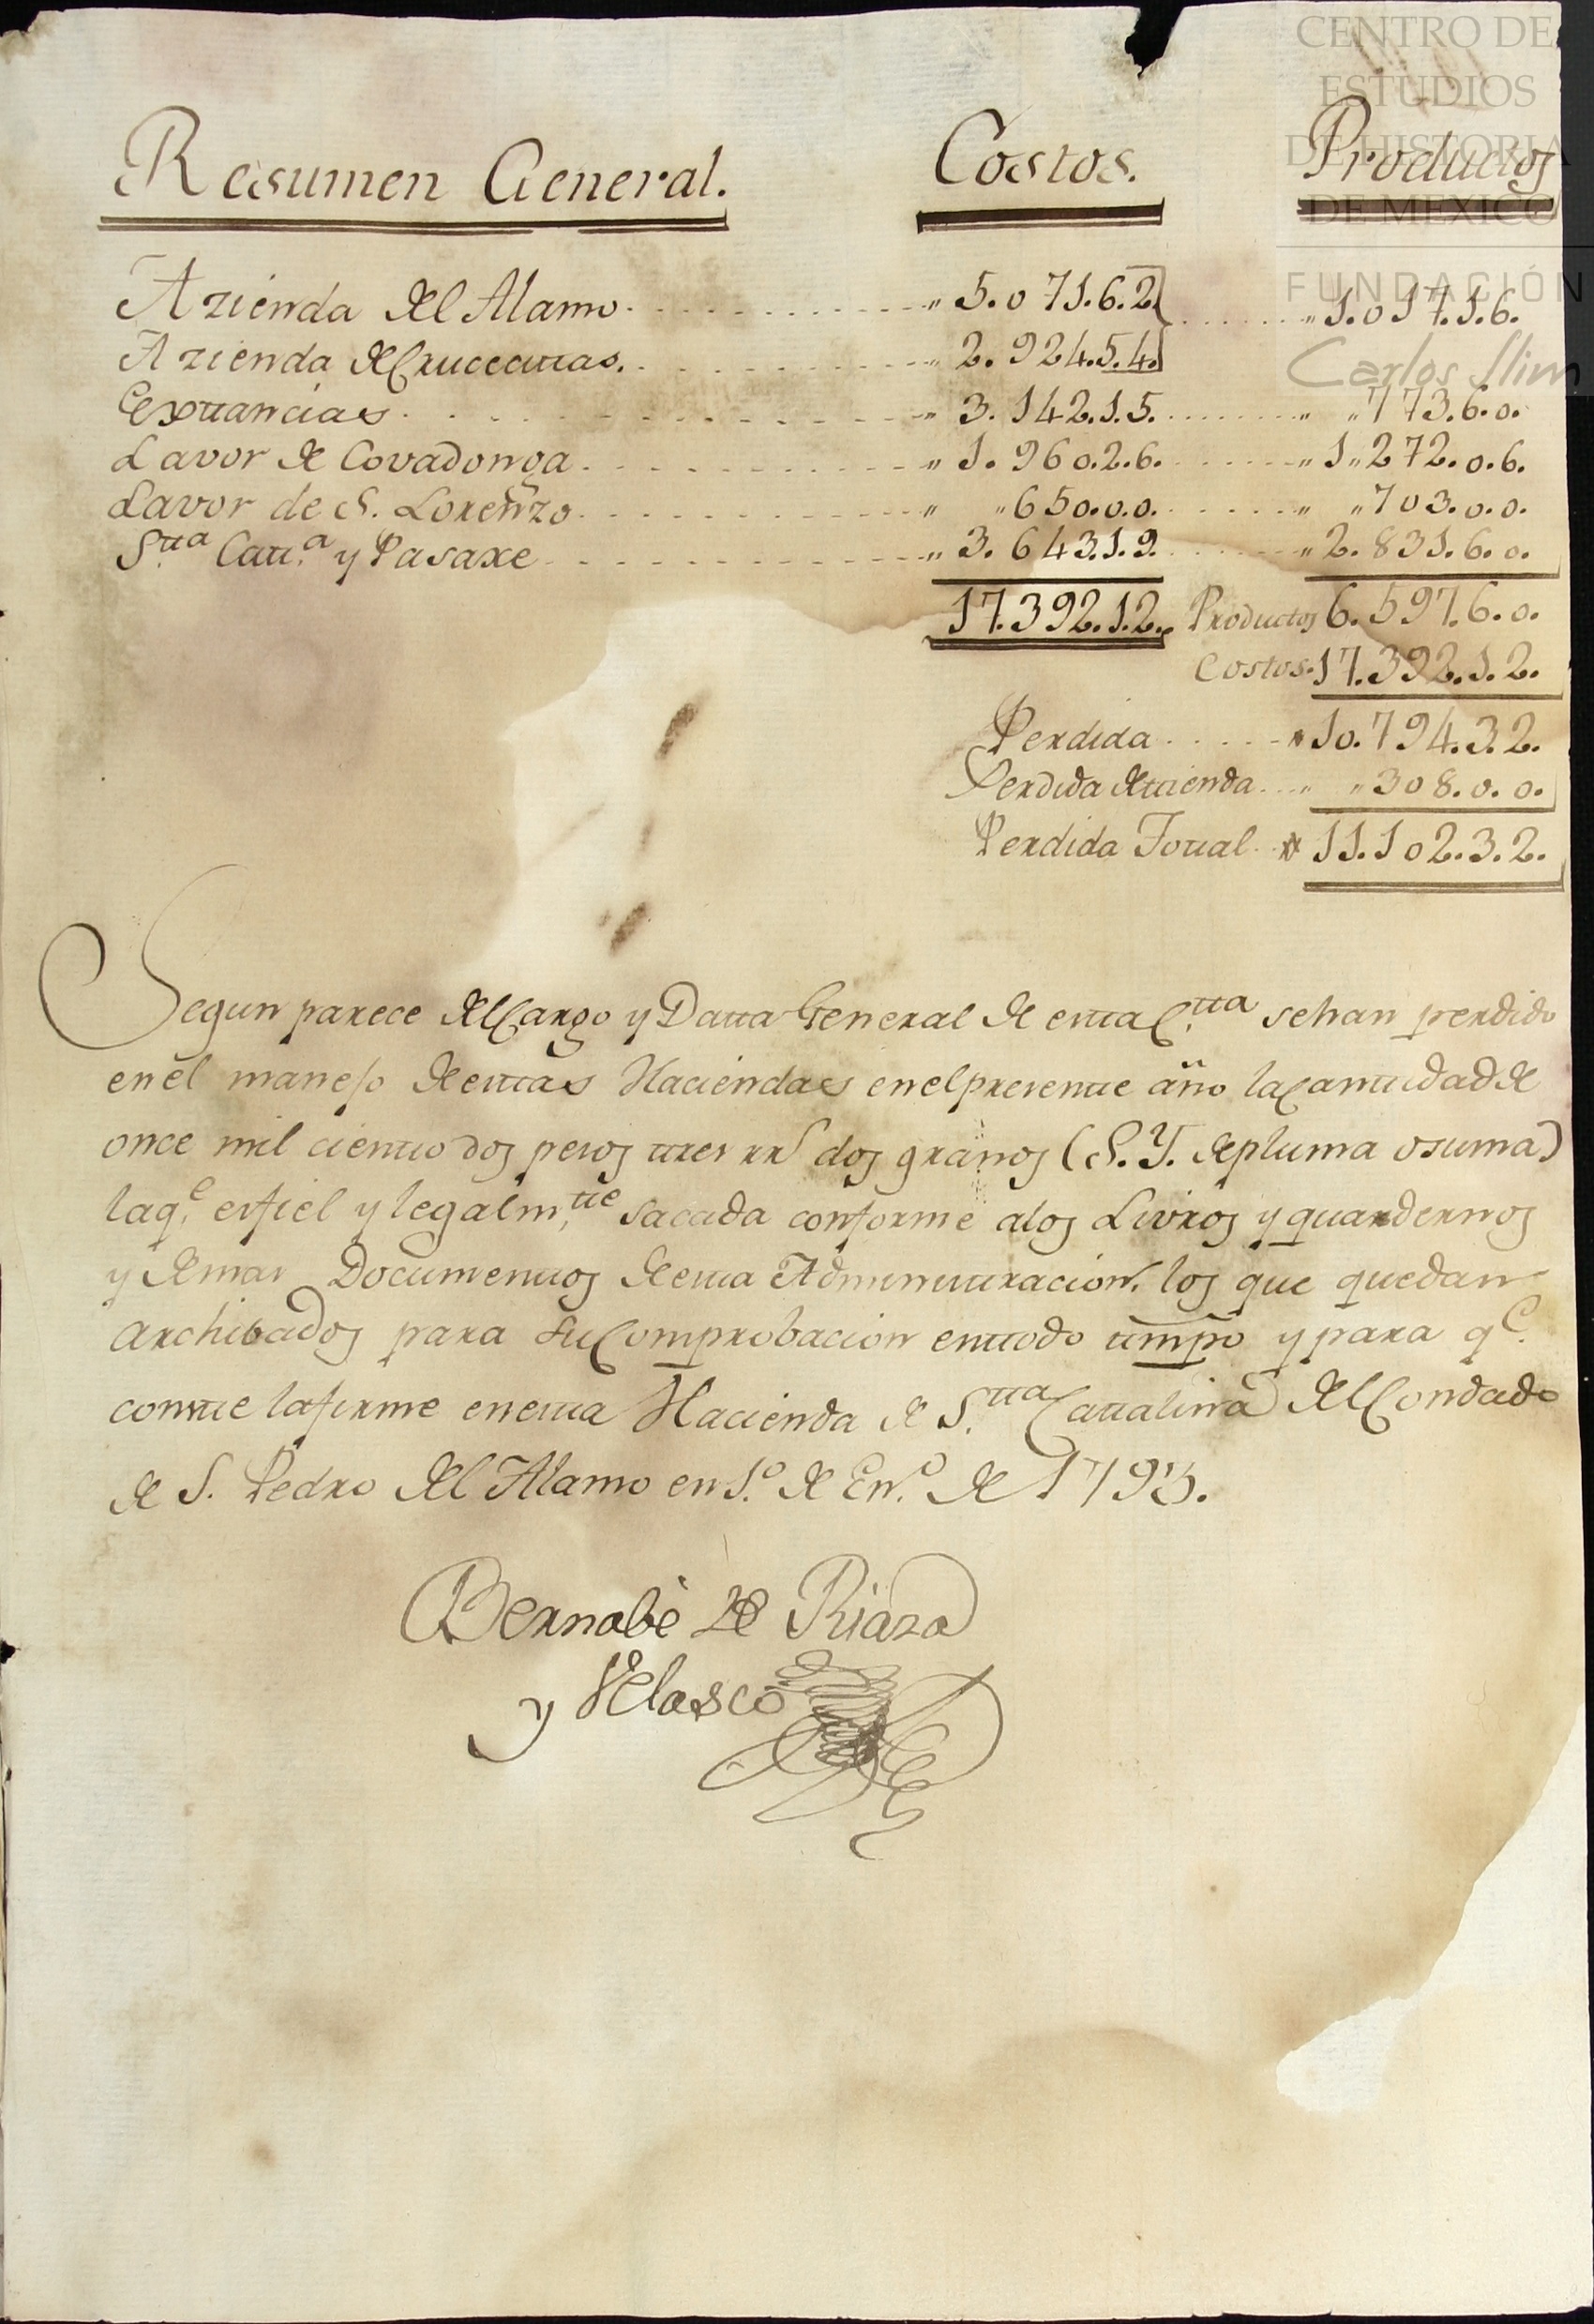 CENTRO DE
ESTUDIOS
DE HISTORIA
DE MEXICO
FUNDACIÓN
Carlos Slim
Resumen General. Costos. Productos
Azienda del Alamo. 5.071.6.2. 1.017.1.6.
Azienda de Crucecittas. 2.924.5.4.
Esttancias 3.142.1.5. 773.6.0.
Lavor de Covadonga 1.960.2.6. 1.272.0.6.
Lavor de S. Lorenzo 650.0.0. 703.0.0.
S.tta Catt.a y Pasaxe 3.643.1.9. 2.831.6.0.
17.392.1.2. Productos 6.597.6.0.
Costos. 17.392.1.2.
Perdida 10.794.3.2.
Perdida de ttienda 308.0.0.
Perdida Tottal 11.102.3.2.
Segun parece del Cargo y Datta General de estta C.tta se han perdido
en el manejo de esttas Haciendas en el presentte año la Canttidad de
once mil ciento dos pesos ttres rrs dos granos (S.Y. de pluma o suma)
la q.e es fiel y legalm.tte sacada conforme a los Livros y quardernos
y demas Documenttos de estta Administtracion. los que quedan
Archibados para su Comprobacion en ttodo tiimpo y para q.e
constte la firme en estta Hacienda de S.tta Cattalina del Condado
de S. Pedro del Alamo en 1.o de En.o de 1793.
Bernabè de Riaza
y Velasco